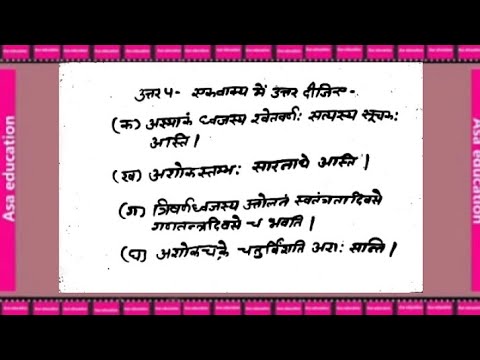 उत्तर 4- एकवाक्य में उत्तर दीजिए-
(क) अस्माकं ध्वजस्य श्वेतवर्णः सत्यस्य सूचकः
अस्ति।
(ख) अशोकस्तम्भः सारनाथे अस्ति।
(ग) त्रिवर्णध्वजस्य उत्तोलनं स्वतंत्रतादिवसे
गणतन्त्रदिवसे च भवति।
(घ) अशोकचक्रे चतुर्विंशति अराः सन्ति।
Asa education
Asa education